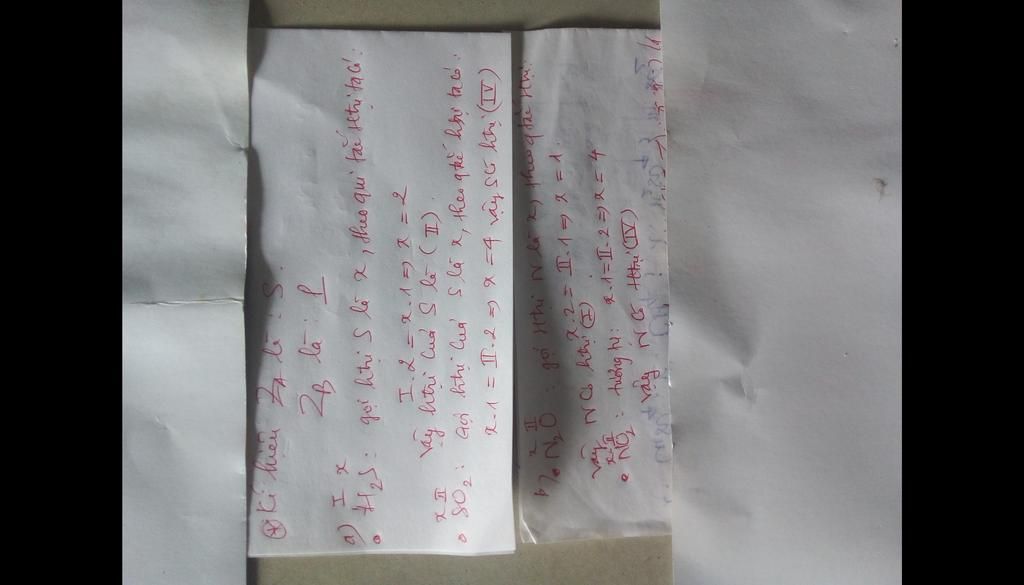 ⊛ Kí hiệu Z_A là: S.
Z_B là: P
a) I x
• H₂S: gọi htrị S là x, theo qui tắc htrị ta có:
I.2 = x.1 => x = 2
Vậy htrị của S là (II).
x II
• SO₂: Gọi htrị của S là x, theo qtắc htrị ta có:
x.1 = II.2 => x = 4 vậy S có htrị (IV)
x II
b) • N₂O: gọi htrị N là x, theo qtắc htrị:
x.2 = II.1 => x = 1.
vậy N có htrị (I)
x II
• NO₂: tương tự: x.1 = II.2 => x = 4
vậy N có htrị (IV)